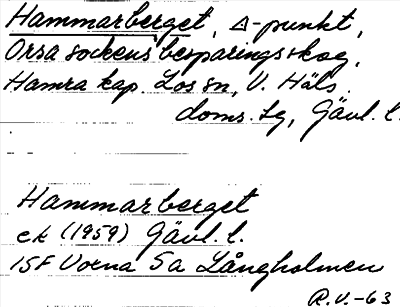 Hammarberget, Δ-punkt,
Orsa sockens besparingsskog,
Hamra kap. Los sn, V. Häls.
doms. sg, Gävl. l.
Hammarberget
ek (1959) Gävl. l.
ISF Vorna 5a Långholmen
R.V.-63